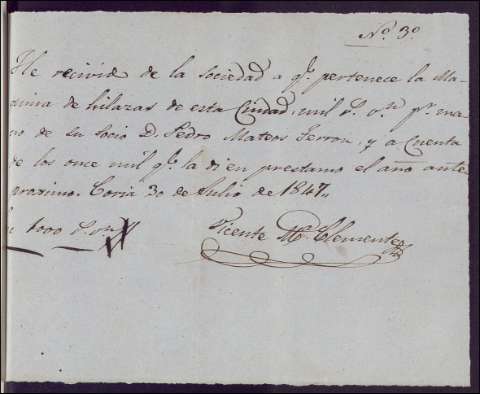 N.º 3º
He recivido de la Sociedad a q.e pertenece la Ma-
quina de hilazas de esta Ciudad, mil r.s v.n p.r ma-
no de su Socio D. Pedro Mateos Ferron, y a Cuenta
de los once mil q.e la di en prestamo el año ante
proximo. Coria 30 de Julio de 1847.,
1000 r.s v.n
Vicente M.a Clemente